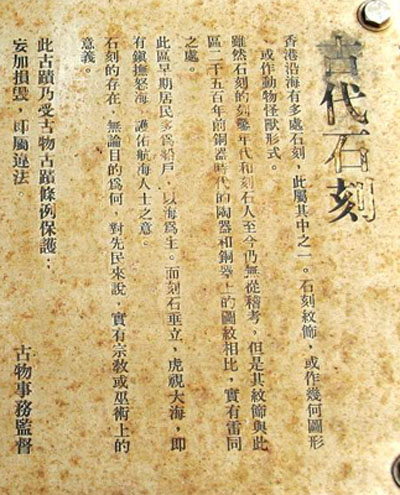 古代石刻
香港沿海有多處石刻，此屬其中之一。石刻紋飾，或作幾何圖形
，或作動物怪獸形式。
雖然石刻的刻鑿年代和刻石人至今仍無從稽考，但是其紋飾與此
區二千五百年前銅器時代的陶器和銅器上的圖紋相比，實有雷同
之處。
此區早期居民多為船戶，以海為主。而刻石垂立，虎視大海，即
有鎮撫怒海，護佑航海人士之意。
石刻的存在，無論目的為何，對先民來說，實有宗教或巫術上的
意義。
此古蹟乃受古物古蹟條例保護；
妄加損毀，即屬違法。
古物事務監督